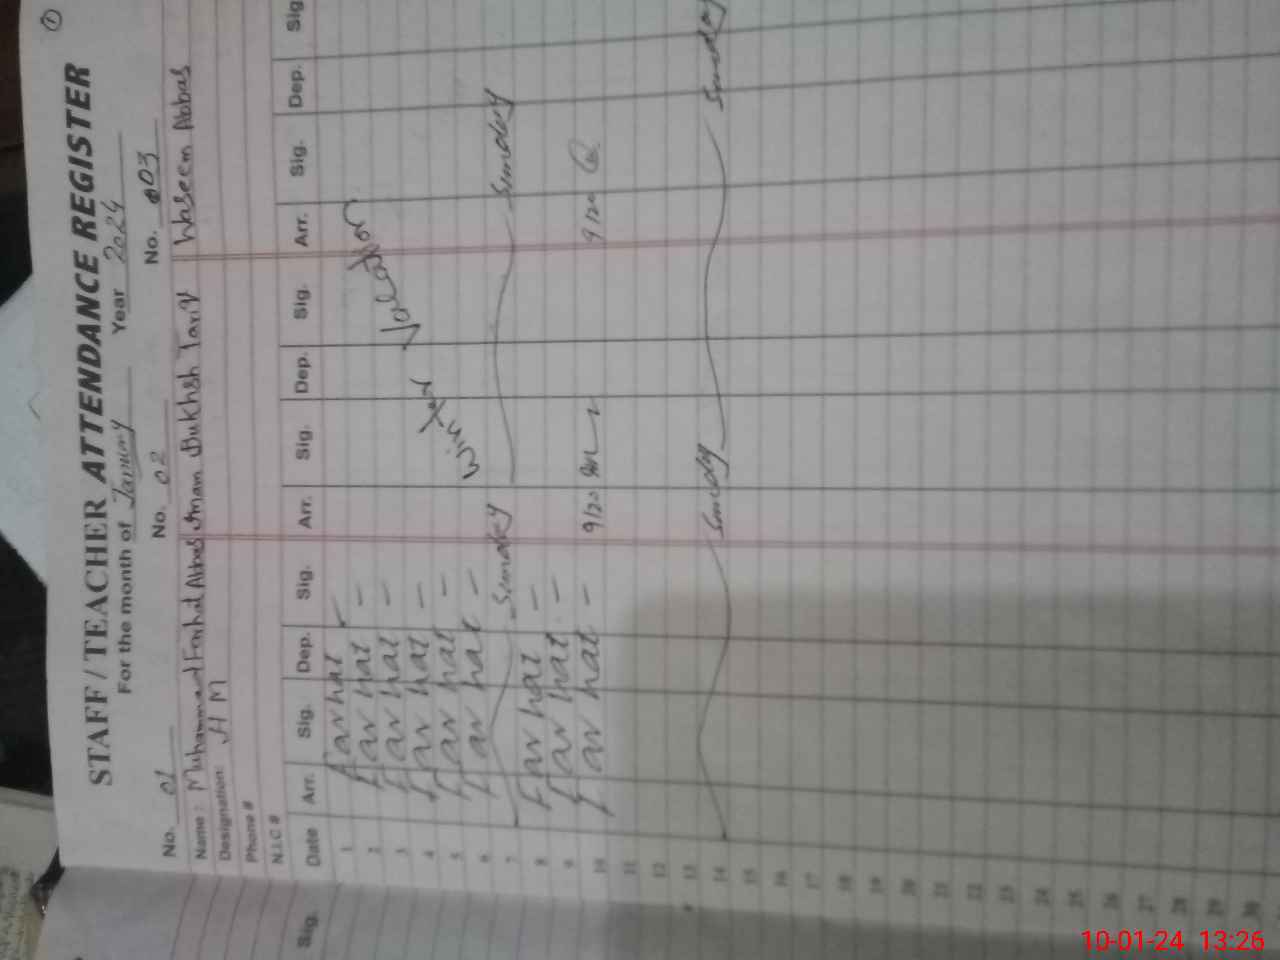 ①
STAFF / TEACHER ATTENDANCE REGISTER
For the month of January Year 2024
No. 01 No. 02 No. 03
Name: Muhammad Farhat Abbas Imam Bukhsh Tariq Waseem Abbas
Designation: H M
Phone #
N.I.C #
Sig. Date Arr. Sig. Dep. Sig. Arr. Sig. Dep. Sig. Arr. Sig. Dep. Sig
1 Farhat
2 Farhat –
3 Farhat –
4 Farhat –
5 Farhat –
6 Farhat –
Winter Vacation
7 Sunday Sunday
8 Farhat –
9 Farhat –
10 Farhat – 9/20 9/20
11
12
13
14 Sunday Sunday
15
16
17
18
19
20
21
22
23
24
25
26
27
28
29
30
10-01-24 13:26